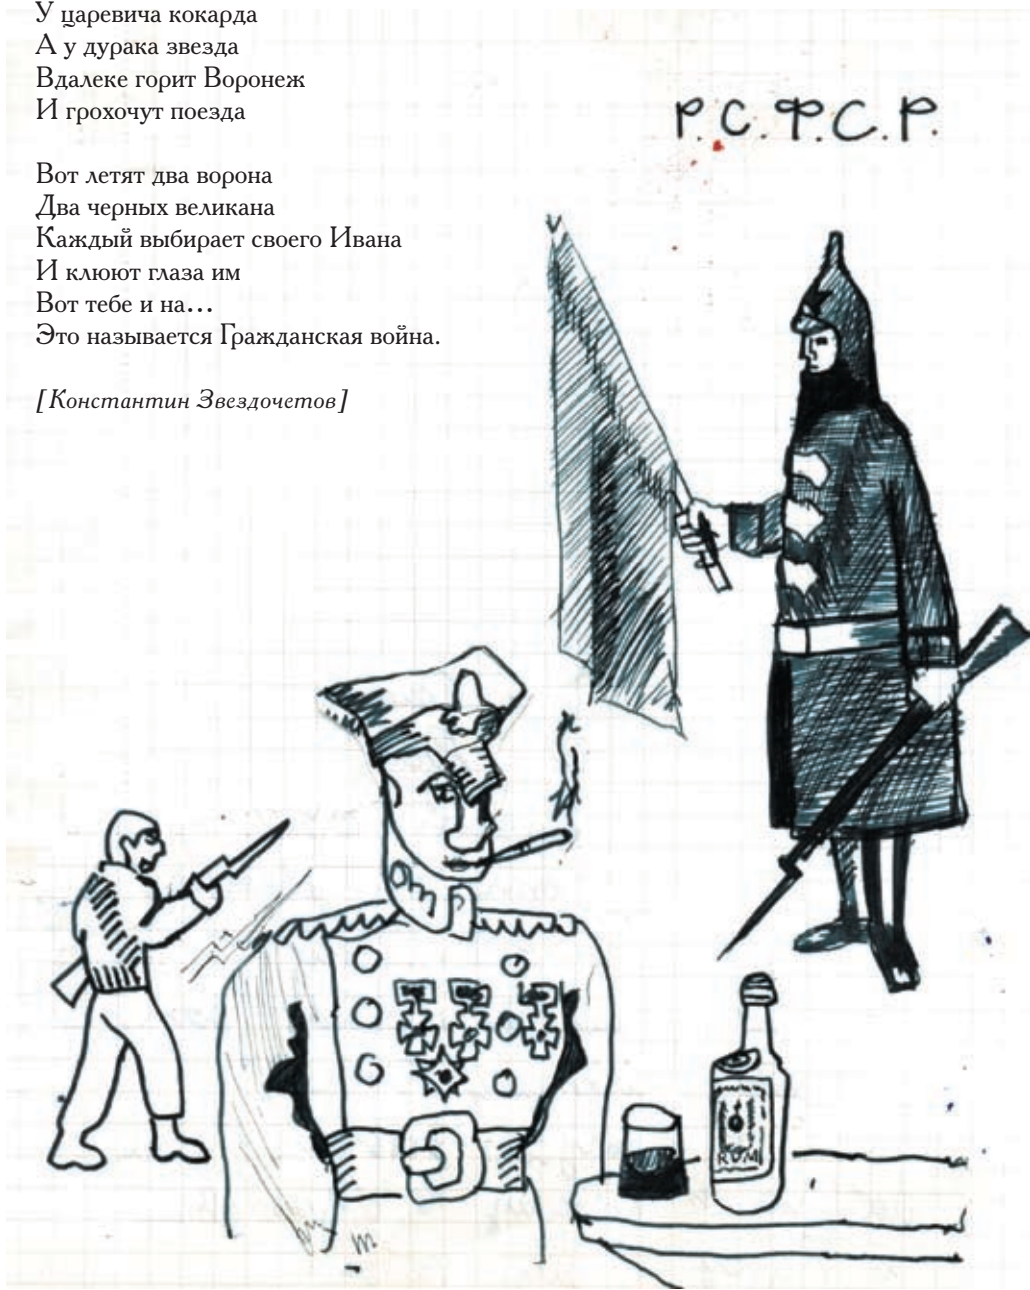 У царевича кокарда
А у дурака звезда
Вдалеке горит Воронеж
И грохочут поезда
Вот летят два ворона
Два черных великана
Каждый выбирает своего Ивана
И клюют глаза им
Вот тебе и на...
Это называется Гражданская война.
[Константин Звездочетов]
Р.С.Ф.С.Р.
RUM